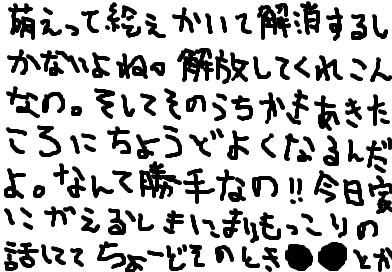 萌えって絵えかいて解消するし
かないよね。解放してくれこん
なの。そしてそのうちかきあきた
ころにちょうどよくなるんだ
よ。なんて勝手なの!!今日家
にがえるしきにまりもっこりの
話してて ちょーどそのとき●●とか